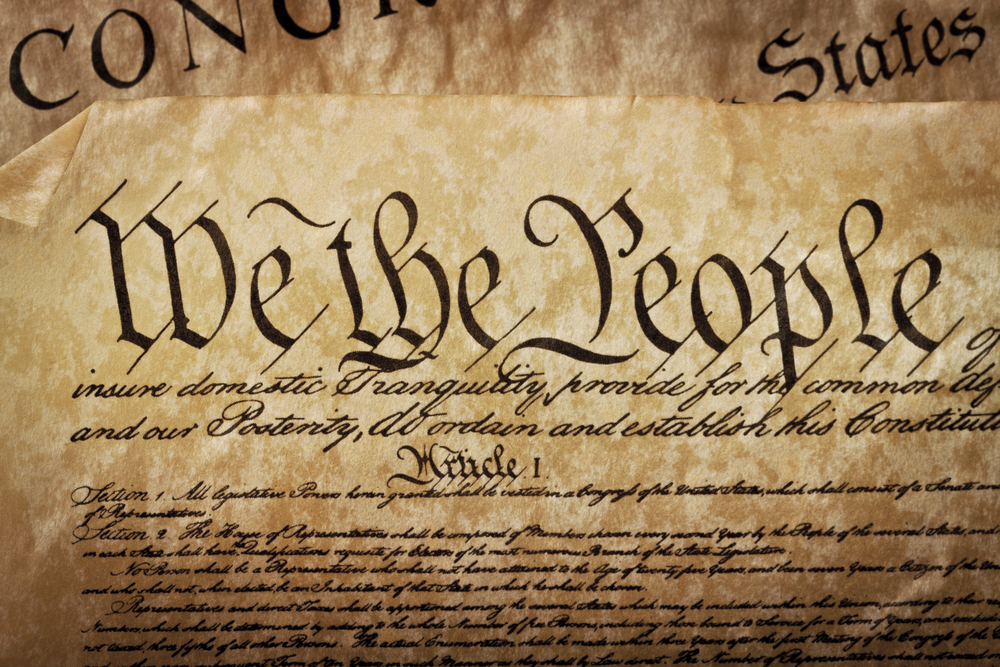 CONGR
States
We the People
of
insure domestic Tranquility, provide for the common def
and our Posterity, do ordain and establish this Constituti
Article I.
Section 1. All legislative Powers herein granted shall be vested in a Congress of the United States, which shall consist of a Senate an
of Representatives.
Section 2. The House of Representatives shall be composed of Members chosen every second Year by the People of the several States, and
in each State shall have Qualifications requisite for Electors of the most numerous Branch of the State Legislature.
No Person shall be a Representative who shall not have attained to the Age of twenty five Years, and been seven Years a Citizen of the Un
and who shall not, when elected, be an Inhabitant of that State in which he shall be chosen.
Representatives and direct Taxes shall be apportioned among the several States which may be included within this Union, according to their
Numbers, which shall be determined by adding to the whole Number of free Persons, including those bound to Service for a Term of Years, and
not taxed, three fifths of all other Persons. The actual Enumeration shall be made within three Years after the first Meeting of the Congress of the
subsequent Term of ten Years, in such Manner as they shall by Law direct. The Number of Representatives shall not exceed